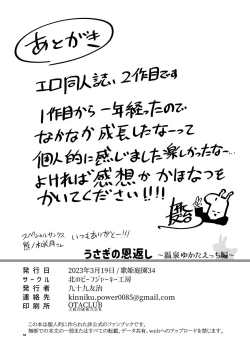 あとがき
エロ同人誌、2作目です
1作目から一年経ったので
なかなか成長したなーって
個人的に感じました楽しかったなー…
よければ感想かかほなつを
かいてください!!!!
スペシャルサンクス
いつもありがとー!!!
うさぎの恩返し ～温泉ゆかたえっち編～
発行日 2023年3月19日/歌姫庭園34
サークル 北のビーフジャーキー工房
発行者 九十九友治
連絡先 kinniku.power0085@gmail.com
印刷所 OTACLUB
この本は個人的に作られた非公式のファンブックです。
無断での本文の一部または すべての転載、データ共有、webへのアップロードを禁じます。